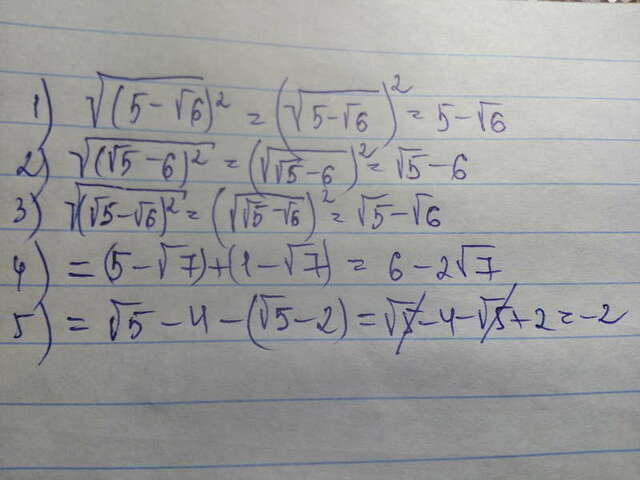 1) √(5-√6)² = (√5-√6)² = 5-√6
2) √(√5-6)² = (√√5-6)² = √5-6
3) √(√5-√6)² = (√√5-√6)² = √5-√6
4) = (5-√7)+(1-√7) = 6-2√7
5) = √5-4-(√5-2) = √5-4-√5+2 = -2